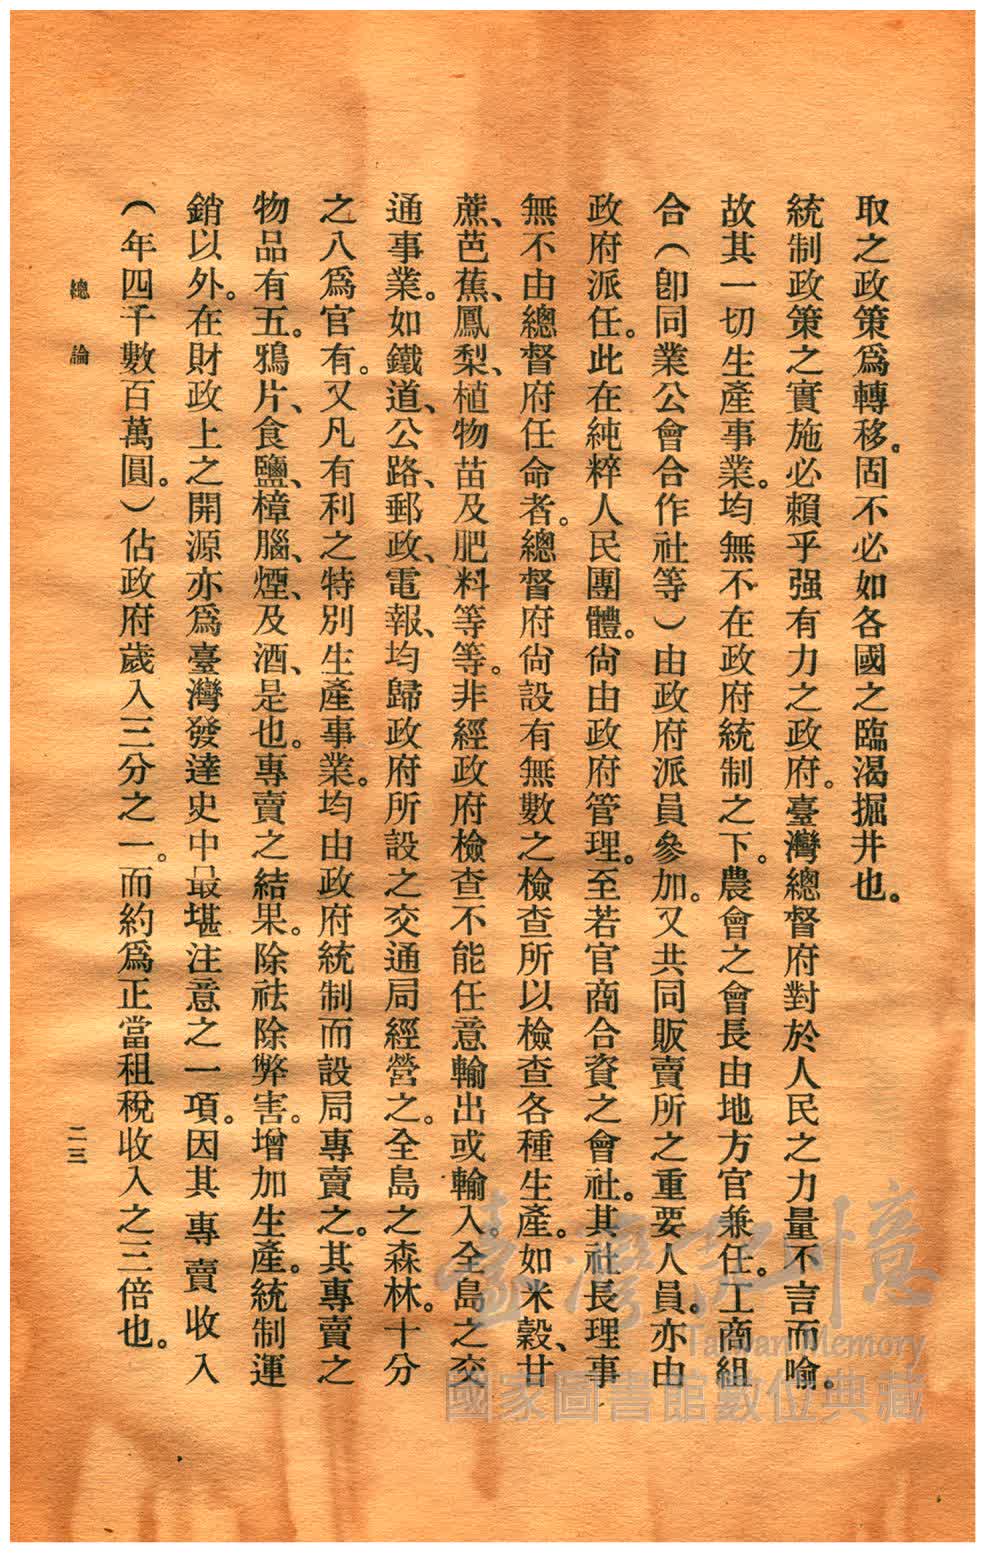 取之政策爲轉移。固不必如各國之臨渴掘井也。
統制政策之實施必賴乎强有力之政府。臺灣總督府對於人民之力量不言而喻。
故其一切生產事業。均無不在政府統制之下。農會之會長由地方官兼任。工商組
合（卽同業公會合作社等）由政府派員參加。又共同販賣所之重要人員。亦由
政府派任。此在純粹人民團體。尙由政府管理。至若官商合資之會社。其社長理事
無不由總督府任命者。總督府尙設有無數之檢查所以檢查各種生產。如米穀、甘
蔗、芭蕉、鳳梨、植物苗及肥料等等。非經政府檢查不能任意輸出或輸入。全島之交
通事業。如鐵道、公路、郵政、電報、均歸政府所設之交通局經營之。全島之森林。十分
之八爲官有。又凡有利之特別生產事業。均由政府統制而設局專賣之。其專賣之
物品有五。鴉片、食鹽、樟腦、煙、及酒、是也。專賣之結果。除祛除弊害。增加生產。統制運
銷以外。在財政上之開源亦爲臺灣發達史中最堪注意之一項。因其專賣收入
（年四千數百萬圓。）佔政府歲入三分之一。而約爲正當租稅收入之三倍也。
總論
二三
臺灣記憶
Taiwan Memory
國家圖書館數位典藏